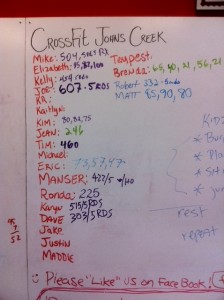 CROSSFIT JOHNS CREEK
Mike: 504
Elizabeth:
Kelly:
Joe: 607.5 RDS
KR:
Kaitlyn:
KIM: 80,82,75
JEAN: 246
TIM: 460
Michael
ERIC: 73,53,47
MANSER: 422/5
Ronda: 225
Karyn 515/5RDS
DAVE 303/5RDS
Jake
JUSTIN
MADDIE
Tempest:
Brenda: 65, 40, 21, 56, 21
Robert 332
MATT 85, 90, 80
KID
REST
repeat
Please "Like" us on FaceBook!